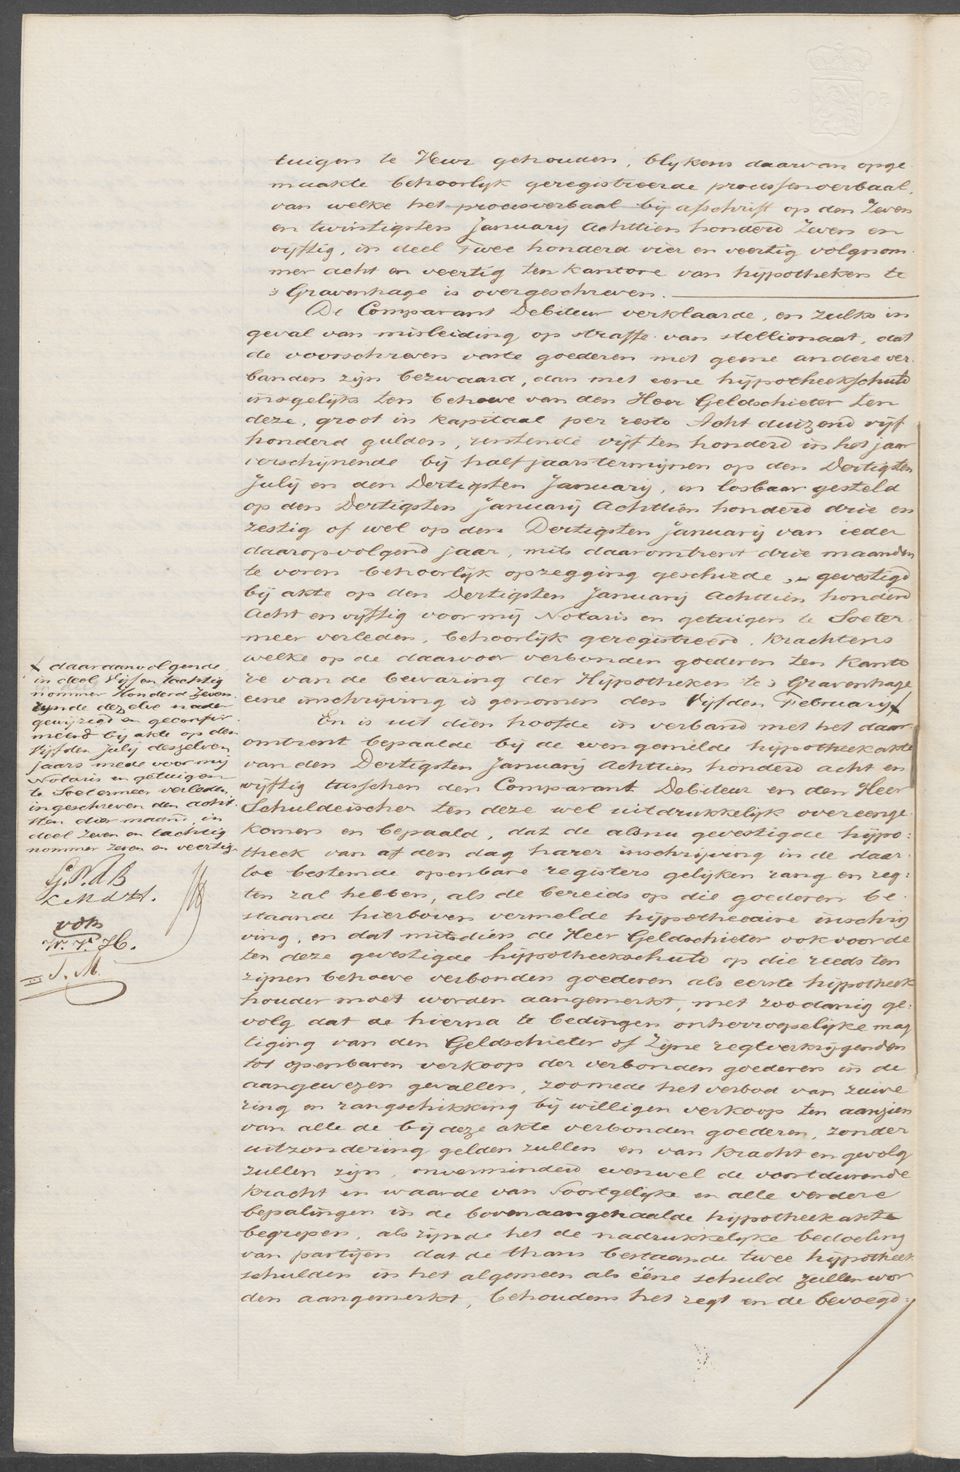 tuigen te Heur gehouden, blykens daarvan opge
maakte behoorlyk geregistreerde processenverbaal,
van welke het procesverbaal by afschrift op den Zeven
en twintigsten January Achttien honderd Zeven en
vyftig, in deel Twee honderd vier en veertig volgnom-
mer acht en veertig ten kantore van hypotheken te
's Gravenhage is overgeschreven.
De Comparant Debiteur verklaarde, en zulks in
geval van misleiding op straffe van stellionaat, dat
de voorschreven vaste goederen met geene andere ver-
banden zyn bezwaard, dan met eene hypotheekschuld
insgelyks ten behoeve van den Heer Geldschieter ten
deze, groot in kapitaal per resto Acht duizend vyf
honderd gulden, rentende vyf ten honderd in het jaar
verschynende by halfjaarstermynen op den Dertigsten
July en den Dertigsten January, en losbaar gesteld
op den Dertigsten January Achttien honderd drie en
zestig of wel op den Dertigsten January van ieder
daaropvolgend jaar, mits daaromtrent drie maanden
te voren behoorlyk opzegging geschiede, gevestigd
by akte op den Dertigsten January Achttien honderd
Acht en vyftig voor my Notaris en getuigen te Soeter-
meer verleden, behoorlyk geregistreerd, krachtens
welke op de daarvoor verbonden goederen ten Kanto
re van de bewaring der Hypotheken te 's Gravenhage
eene inschryving is genomen den Vyfden February
En is uit dien hoofde in verband met het daar
omtrent bepaalde by de evengemelde hypotheekakte
van den Dertigsten January Achttien honderd acht en
vyftig tusschen den Comparant Debiteur en den Heer
Schuldeischer ten deze wel uitdrukkelyk overeenge-
komen en bepaald, dat de alsnu gevestigde hypo-
theek van af den dag harer inschryving in de daar-
toe bestemde openbare registers gelyken rang en reg-
ten zal hebben, als de bereids op die goederen be-
staande hierboven vermelde hypothecaire inschry
ving, en dat mitsdien de Heer Geldschieter ook voor de
ten deze gevestigde hypotheekschuld op die reeds ten
zynen behoeve verbonden goederen als eerste hypotheek
houder moet worden aangemerkt, met zoodanig ge-
volg dat de hierna te bedingen onherroepelyke mag
tiging van den Geldschieter of zyne regtverkrygenden
tot openbaren verkoop der verbonden goederen in de
aangewezen gevallen, zoomede het verbod van zuive
ring en rangschikking by willigen verkoop ten aanzien
van alle de by deze akte verbonden goederen, zonder
uitzondering gelden zullen en van kracht en gevolg
zullen zyn, onverminderd evenwel de voortdurende
kracht en waarde van soortgelyke en alle verdere
bepalingen in de bovenaangehaalde hypotheekakte
begrepen, als zynde het de nadrukkelyke bedoeling
van partyen dat de thans bestaande twee hypotheek
schulden in het algemeen als ééne schuld zullen wor
den aangemerkt, behoudens het regt en de bevoegd-
daaraanvolgende,
in deel Vyf en tachtig
nommer Honderd zeven,
zynde dezelve nader
gewyzigd en geconfir-
meerd by akte op den
Vyfden July deszelven
jaars mede voor my
Notaris en getuigen
te Soetermeer verleden,
ingeschreven den acht-
sten dier maand, in
deel zeven en tachtig
nommer zeven en veertig.
G.P.d B
vdk
W.V.H.
J.M.